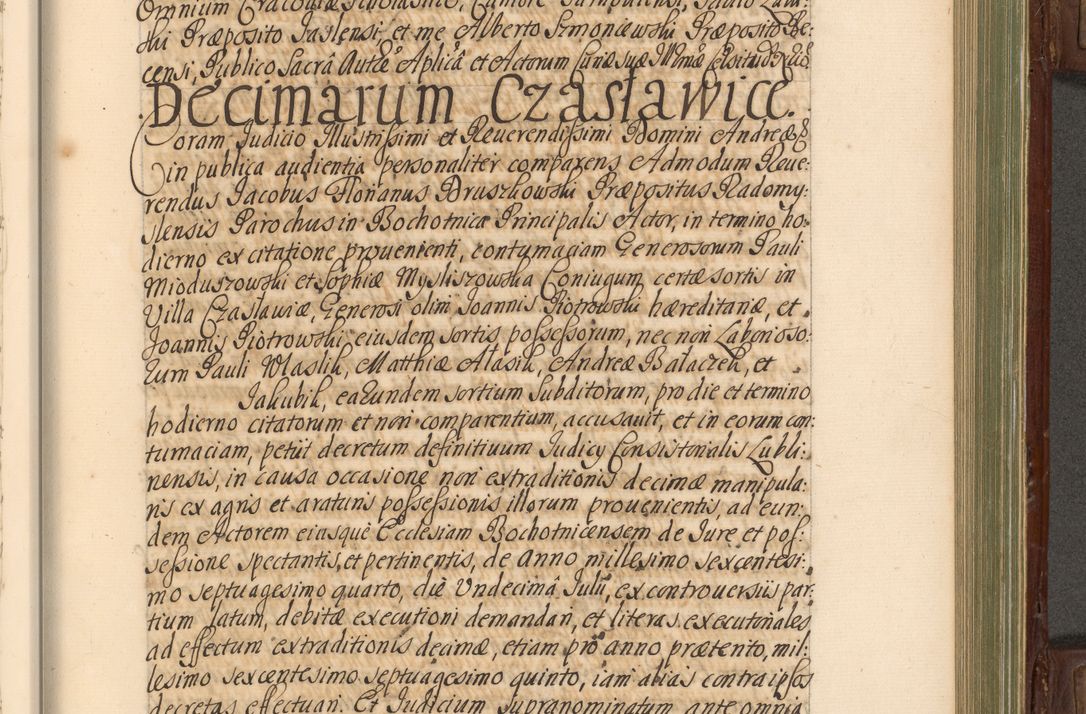 Omnium Cracoviæ Scholastico, Canone
ski Præposito Jaslensi, et me Alberto Szmoniewski Præposito Be:
censi, Publico Sacrâ Authæ Aplicâ et Actorum
Decimarum Czasławice.
Coram Judicio Illustrissimi et Reverendissimi Domini Andreæ &c
in publica audientia personaliter comparens Admodum Reve:
rendus Jacobus Florianus Bruszkowski Præpositus Radomy:
slensis Parochus in Bochotnica Principalis Actor, in termino ho:
dierno ex citatione provenienti, contumaciam Generosorum Pauli
Mioduszowski et Sophiæ Mysliszowska Coniugum certæ sortis in
Villa Czasławiæ, Generosi olim Joannis Piotrowski hæreditariæ, et
Joannis Piotrowski eiusdem sortis possessorum, nec non Laborioso:
rum Pauli Wlaslik, Matthiæ Ałasik, Andreæ Bałaczek, et
Jakubik, earundem sortium Subditorum, pro die et termino
hodierno citatorum et non comparentium, accusavit, et in eorum con:
tumaciam, petiit decretum definitivum Judicy Consistorialis Lubli:
nensis, in causa occasione non extraditionis decimæ manipula:
ris ex agris et araturis possessionis illorum provenientis, ad eun:
dem Actorem eiusque Ecclesiam Bochotnicensem de Jure et pos:
sessione spectantis, et pertinentis, de Anno millesimo sexcentesi:
mo septuagesimo quarto, die Undecimâ Julii, ex controversiis par:
tium latum, debitæ executioni demandari, et literas executoriales
ad effectum extraditionis decimæ, etiam pro anno prætento, mil:
lesimo sexcentesimo septuagesimo quinto, iam alias contra ipsos
decretas effectuari. Et Judicium supranominatum ante omnia